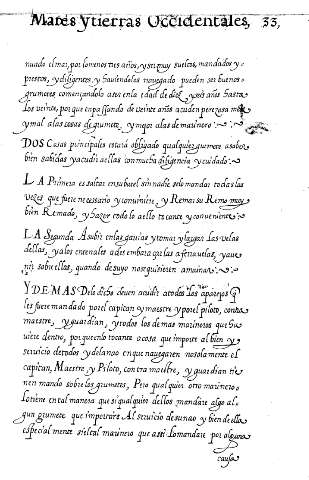 Mares y tierras Occidentales, 33,
nuado elmar, por lo menos tres años, y ser muy sueltos, mandados y
prestos, y diligentes, y haviendoles navegado pueden ser buenos
grumetes començandolo a ser en la edad de diez, y seis años hasta
los veinte, porque en passando de veinte años acuden pereçosa
y mal a las cosas de grumete, y mejor a las de marinero
DOS Cosas principales estará obligado qualquier grumete a saber
bien sabidas y acudir a ellas con mucha diligencia y cuidado
LA Primera es saltar en su batel sin nadie se lo mandar todas las
vezes que fuere necessario y conviniere, y Remar su Remo muy
bién Remado, y hazer todo lo a ello tocante y conveniente
LA Segunda A subir en las gavias y tomar y largar las velas
dellas, y a los entenales a des embota carlas a ferrarlas, y a
sobre ellas, quando de suyo no se quisieren amainar
Y DEMAS Delo dicho deven acudir a todos los aparejos q̃
les fuere mandado por el capitan y maestre y por el piloto, contra
maestre, y guardian, y todos los demas marineros que hu
viere dentro, porque no tocante cosa que importe al bien y
servicio de todos y dela nao en que navegaren no solamente el
capitan, Maestre, y Piloto, contra maestre, y guardian tie
nen mando sobre los grumetes, Pero qualquier otro marinero
lo tiene en tal manera que si qualquier dellos mandare algo al
gun grumete que importara Al servicio de su nao y bien de ella
especial mente si el tal marinero que assi lo mandare por alguna
causa